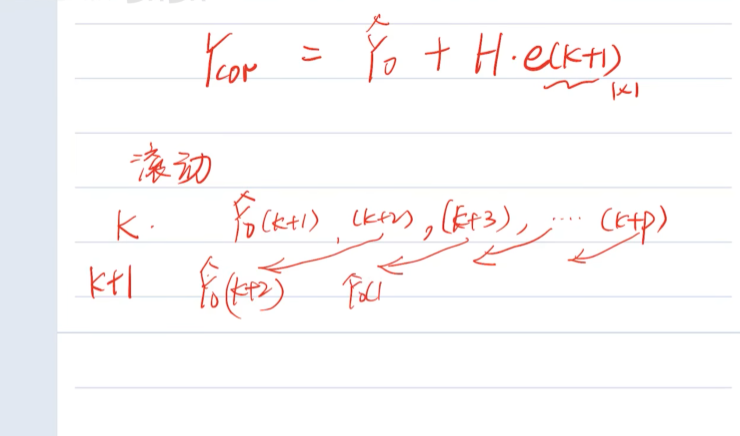 Ycor = Ŷ₀ + H·e(k+1)
1×1
滚动
k. Ŷ₀(k+1), (k+2), (k+3), ···· (k+p)
k+1 Ŷ₀(k+2) Ŷ₀(